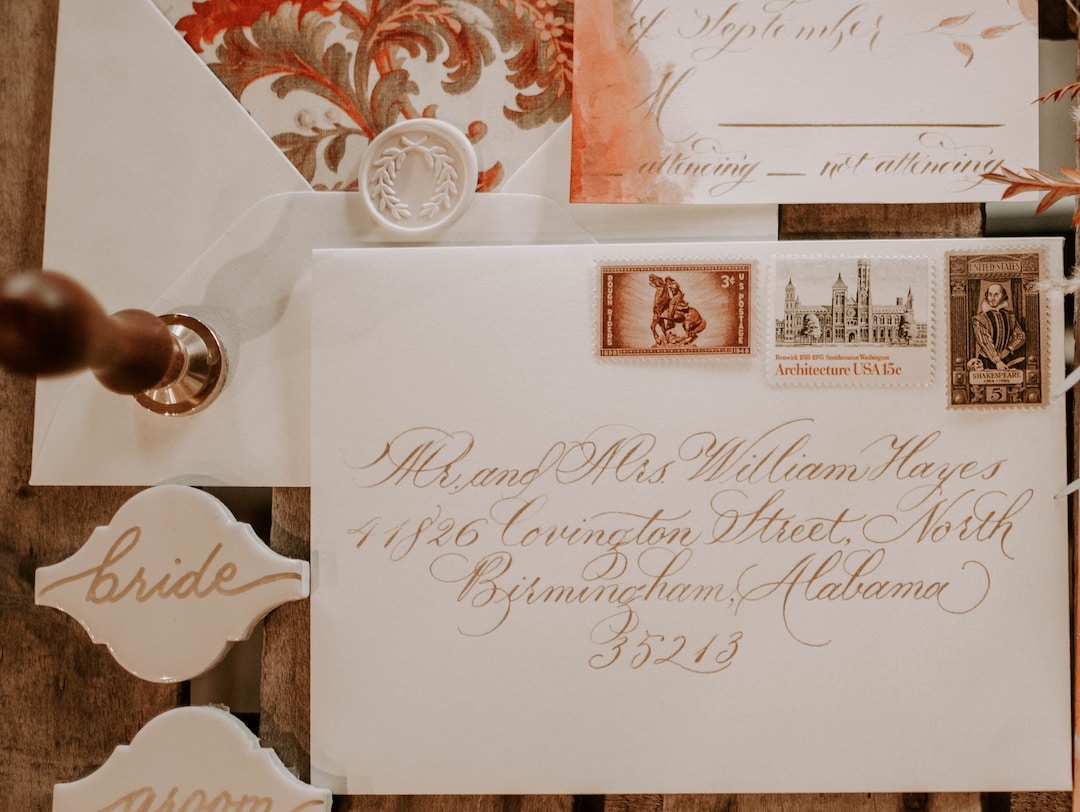 of September
M
_ attending _ not attending
ROUGH RIDERS
3¢
U S POSTAGE
1898 1948
Renwick 1818-1895 Smithsonian Washington
Architecture USA 15c
UNITED STATES
SHAKESPEARE
1564-1964
5
Mr. and Mrs. William Hayes
41826 Covington Street, North
Birmingham, Alabama
35213
bride
groom